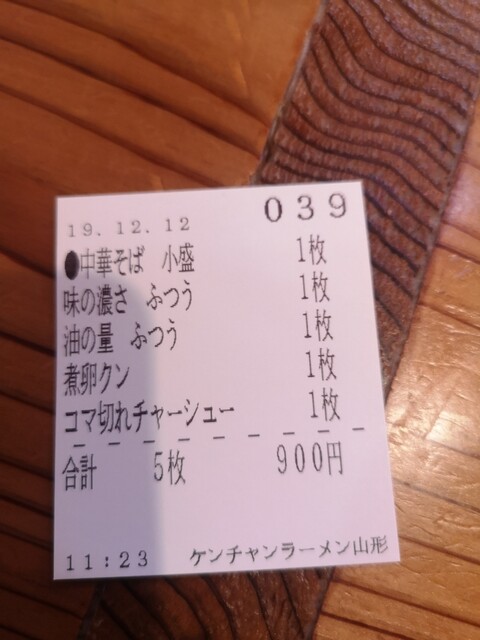 19.12.12 039
●中華そば 小盛 1枚
味の濃さ ふつう 1枚
油の量 ふつう 1枚
煮卵クン 1枚
コマ切れチャーシュー 1枚
合計 5枚 900円
11:23 ケンチャンラーメン山形